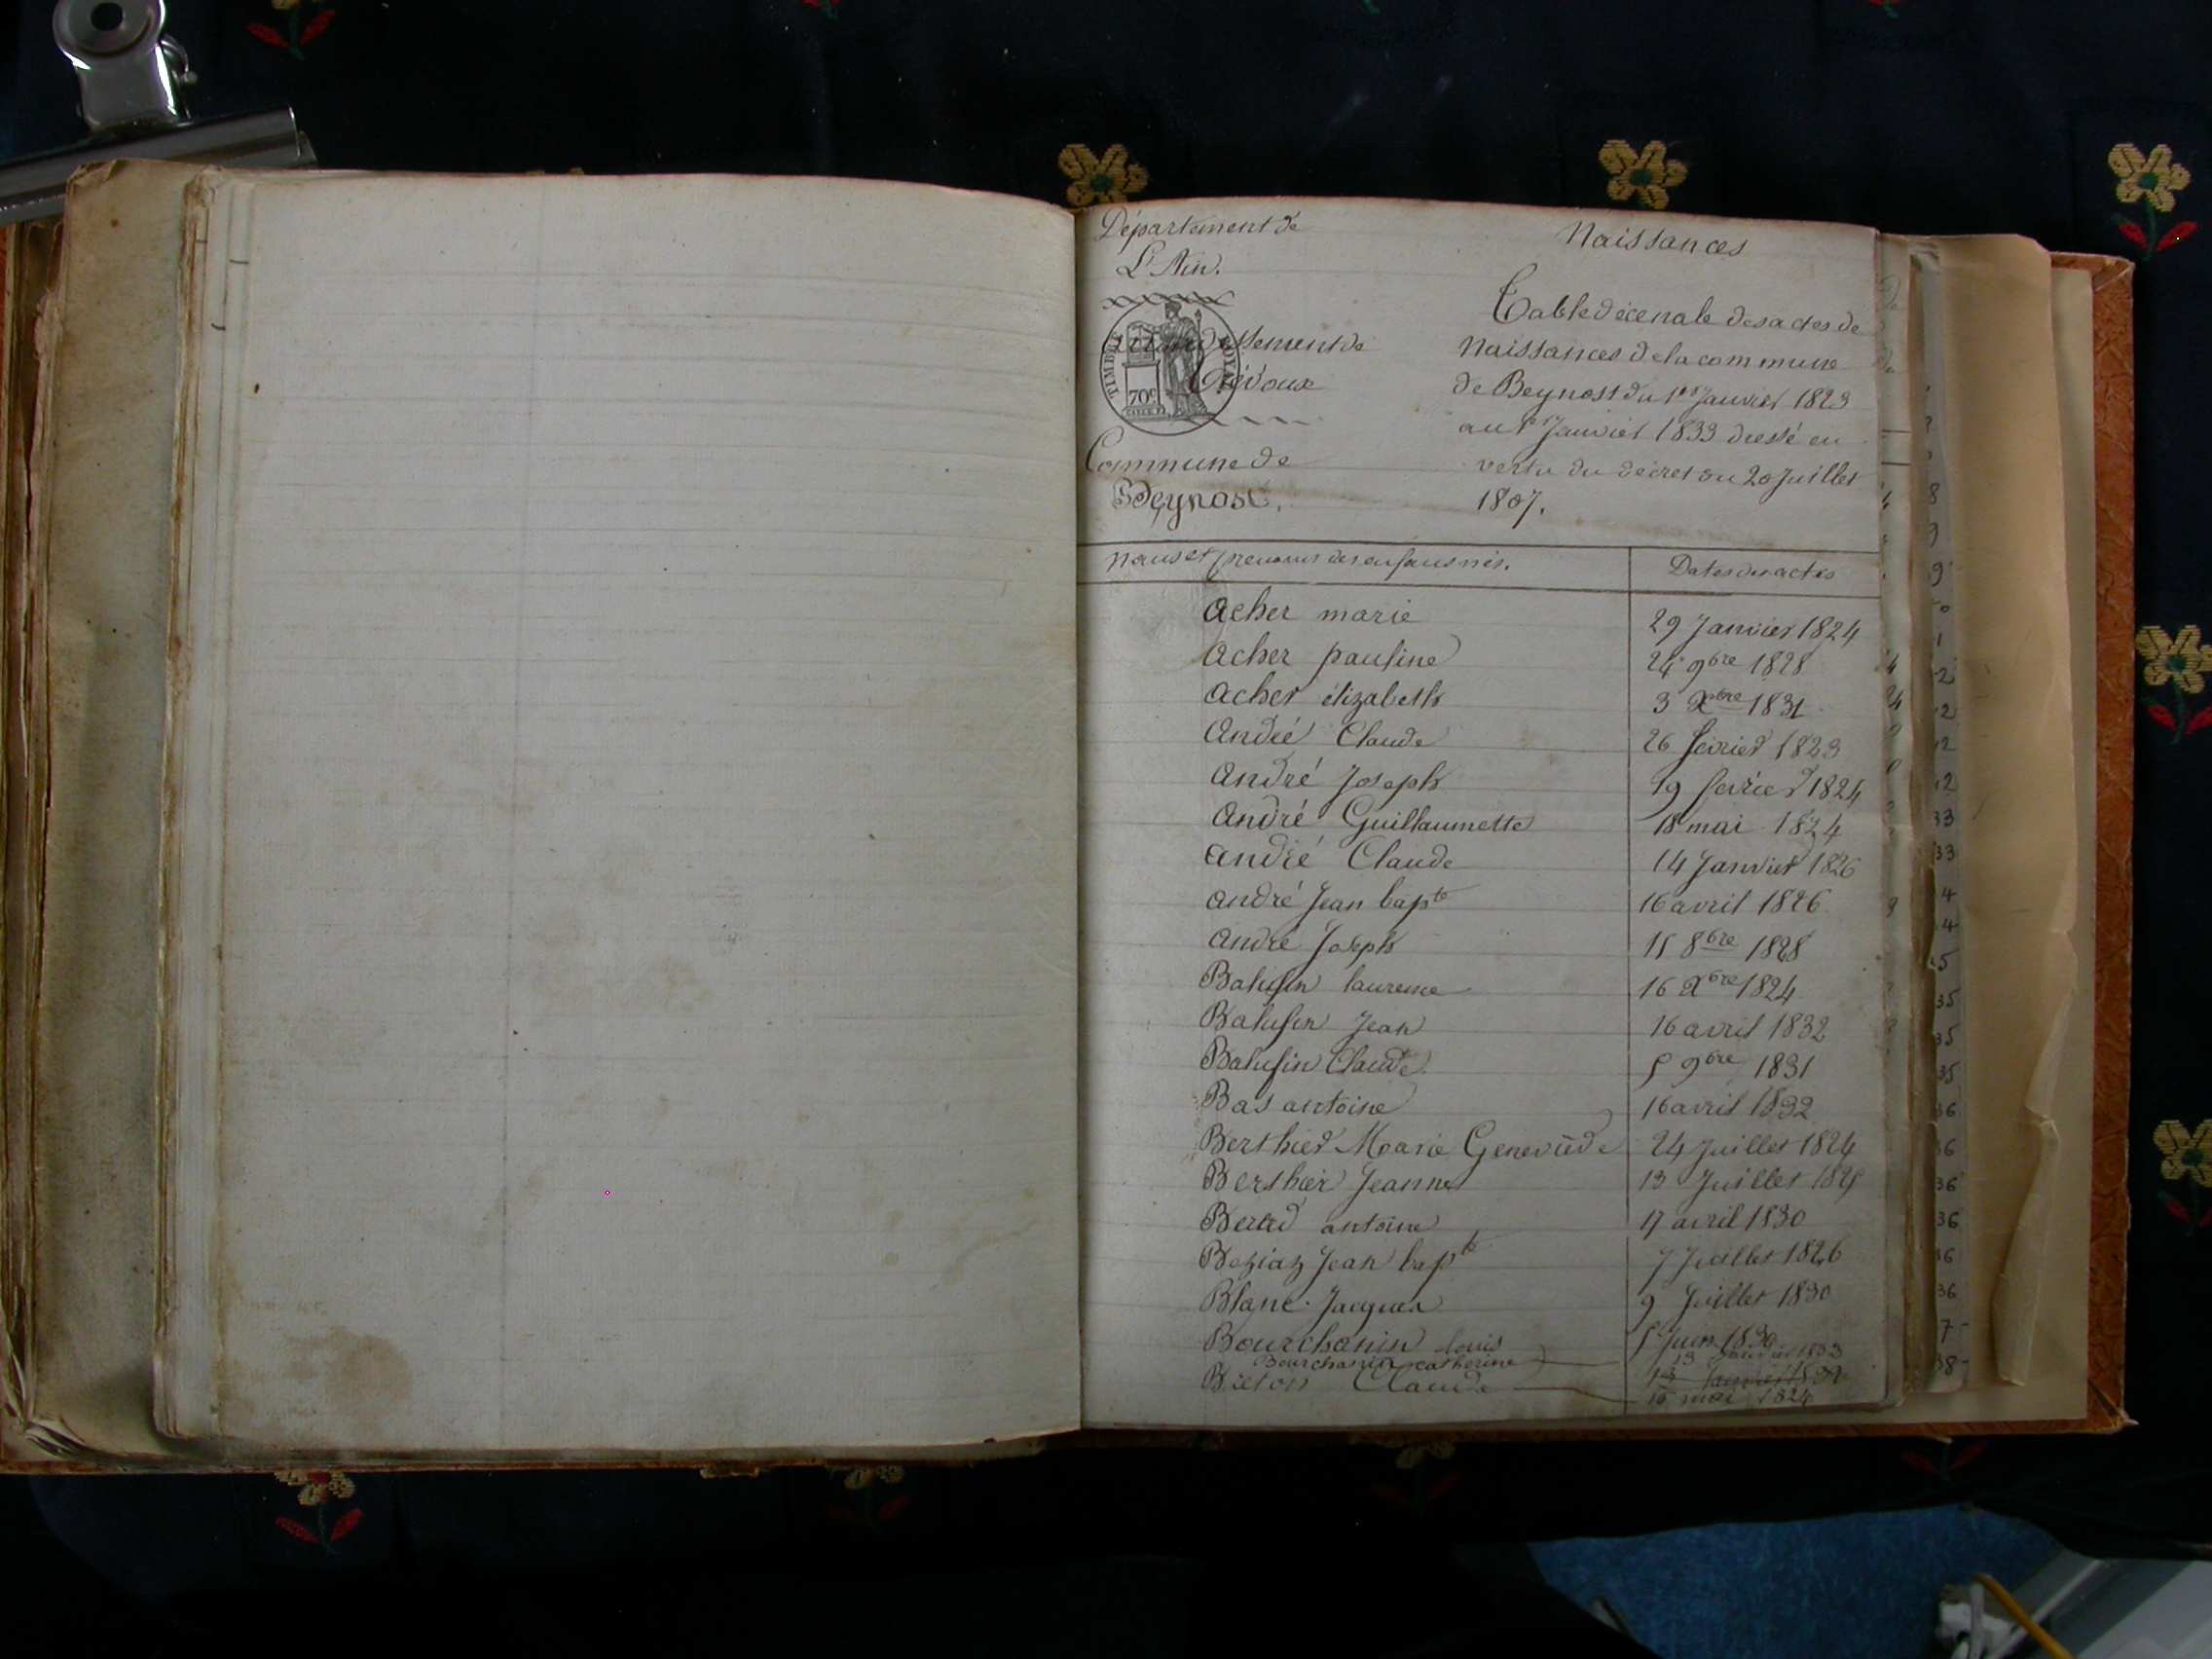 Département de
L'Ain.
TIMBRE ROYAL
70c
Arrondissement de
Trévoux
Commune de
Beynost.
Naissances
Table décenale des actes de
Naissances de la commune
de Beynost du 1er Janvier 1823
au 1er Janvier 1833 dressé en
vertu du décret du 20 Juillet
1807.
Noms et prenoms des enfans nés. Dates des actes
Acher marie 29 Janvier 1824
Acher pauline 24 9bre 1828
Acher élizabeth 3 Xbre 1831
André Claude 26 février 1823
André Joseph 19 fevrier 1824
André Guillaumette 18 mai 1824
André Claude 14 Janvier 1826
andré Jean bapte 16 avril 1826
André Joseph 15 8bre 1828
Balufin laurence 16 Xbre 1824
Balufin Jean 16 avril 1832
Balufin Claude 5 9bre 1831
Bas antoine 16 avril 1832
Berthier Marie 24 Juillet 1824
Berthier Jeanne 13 Juillet 1825
antoine 17 avril 1830
Beziaz Jean bapte 7 Juillet 1826
Blanc Jacques 9 Juillet 1830
Bourchanin louis 5 Juin 1830
Bourchanin catherine 13 Janvier 1833
13 Janvier
Breton Claude 16 mai 1824